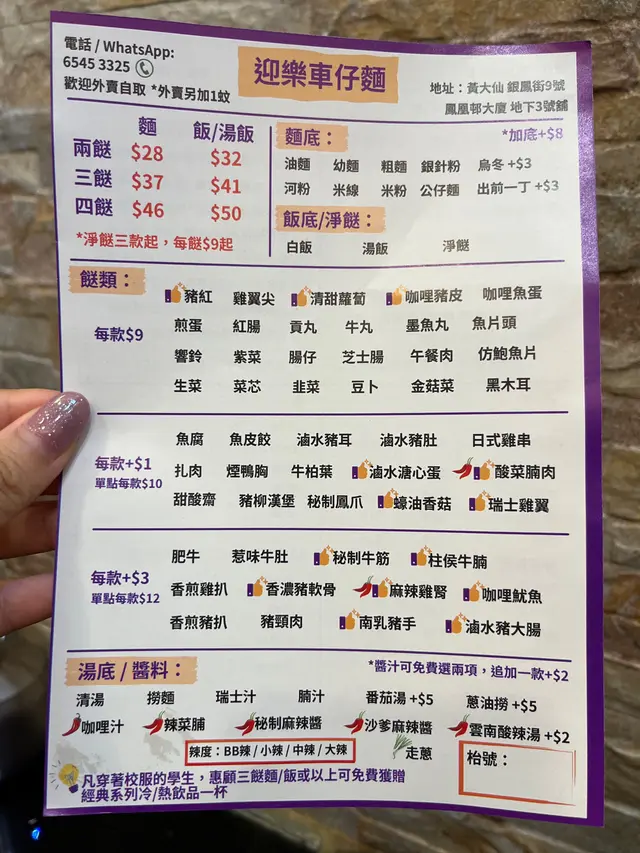 電話 / WhatsApp:
6545 3325
歡迎外賣自取 *外賣另加1蚊
迎樂車仔麵
地址：黃大仙 銀鳳街9號
鳳凰邨大廈 地下3號舖
麵 飯/湯飯
兩餸 $28 $32
三餸 $37 $41
四餸 $46 $50
*淨餸三款起，每餸$9起
麵底： *加底+$8
油麵 幼麵 粗麵 銀針粉 烏冬+$3
河粉 米線 米粉 公仔麵 出前一丁+$3
飯底/淨餸：
白飯 湯飯 淨餸
餸類：
每款$9
豬紅 雞翼尖 清甜蘿蔔 咖哩豬皮 咖哩魚蛋
煎蛋 紅腸 貢丸 牛丸 墨魚丸 魚片頭
響鈴 紫菜 腸仔 芝士腸 午餐肉 仿鮑魚片
生菜 菜芯 韭菜 豆卜 金菇菜 黑木耳
每款+$1
單點每款$10
魚腐 魚皮餃 滷水豬耳 滷水豬肚 日式雞串
扎肉 煙鴨胸 牛柏葉 滷水溏心蛋 酸菜腩肉
甜酸齋 豬柳漢堡 秘制鳳爪 蠔油香菇 瑞士雞翼
每款+$3
單點每款$12
肥牛 惹味牛肚 秘制牛筋 柱侯牛腩
香煎雞扒 香濃豬軟骨 麻辣雞腎 咖哩魷魚
香煎豬扒 豬頸肉 南乳豬手 滷水豬大腸
湯底 / 醬料： *醬汁可免費選兩項，追加一款+$2
清湯 撈麵 瑞士汁 腩汁 番茄湯+$5 蔥油撈+$5
咖哩汁 辣菜脯 秘制麻辣醬 沙爹麻辣醬 雲南酸辣湯+$2
辣度：BB辣 / 小辣 / 中辣 / 大辣 走蔥
枱號：
凡穿著校服的學生，惠顧三餸麵/飯或以上可免費獲贈
經典系列冷/熱飲品一杯